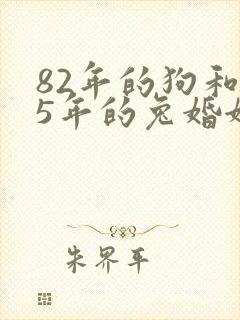 82年的狗和
5年的兔婚
朱界平